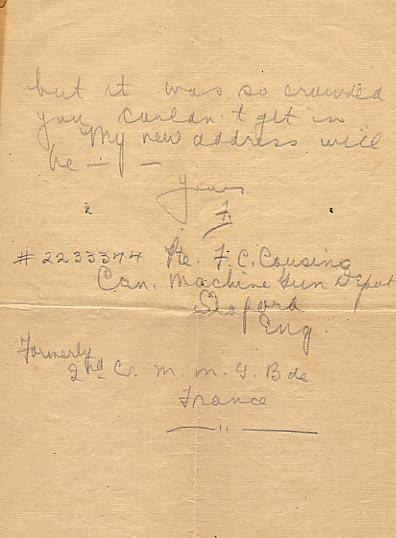 but it was so crowded
you couldn't get in
My new address will
be — —
Yours
F.
# 2233344 Pte. F. C. Cousins
Can. Machine Gun Depot
Seaford
Eng.
Formerly
2nd C. M. M. G. Bde
France